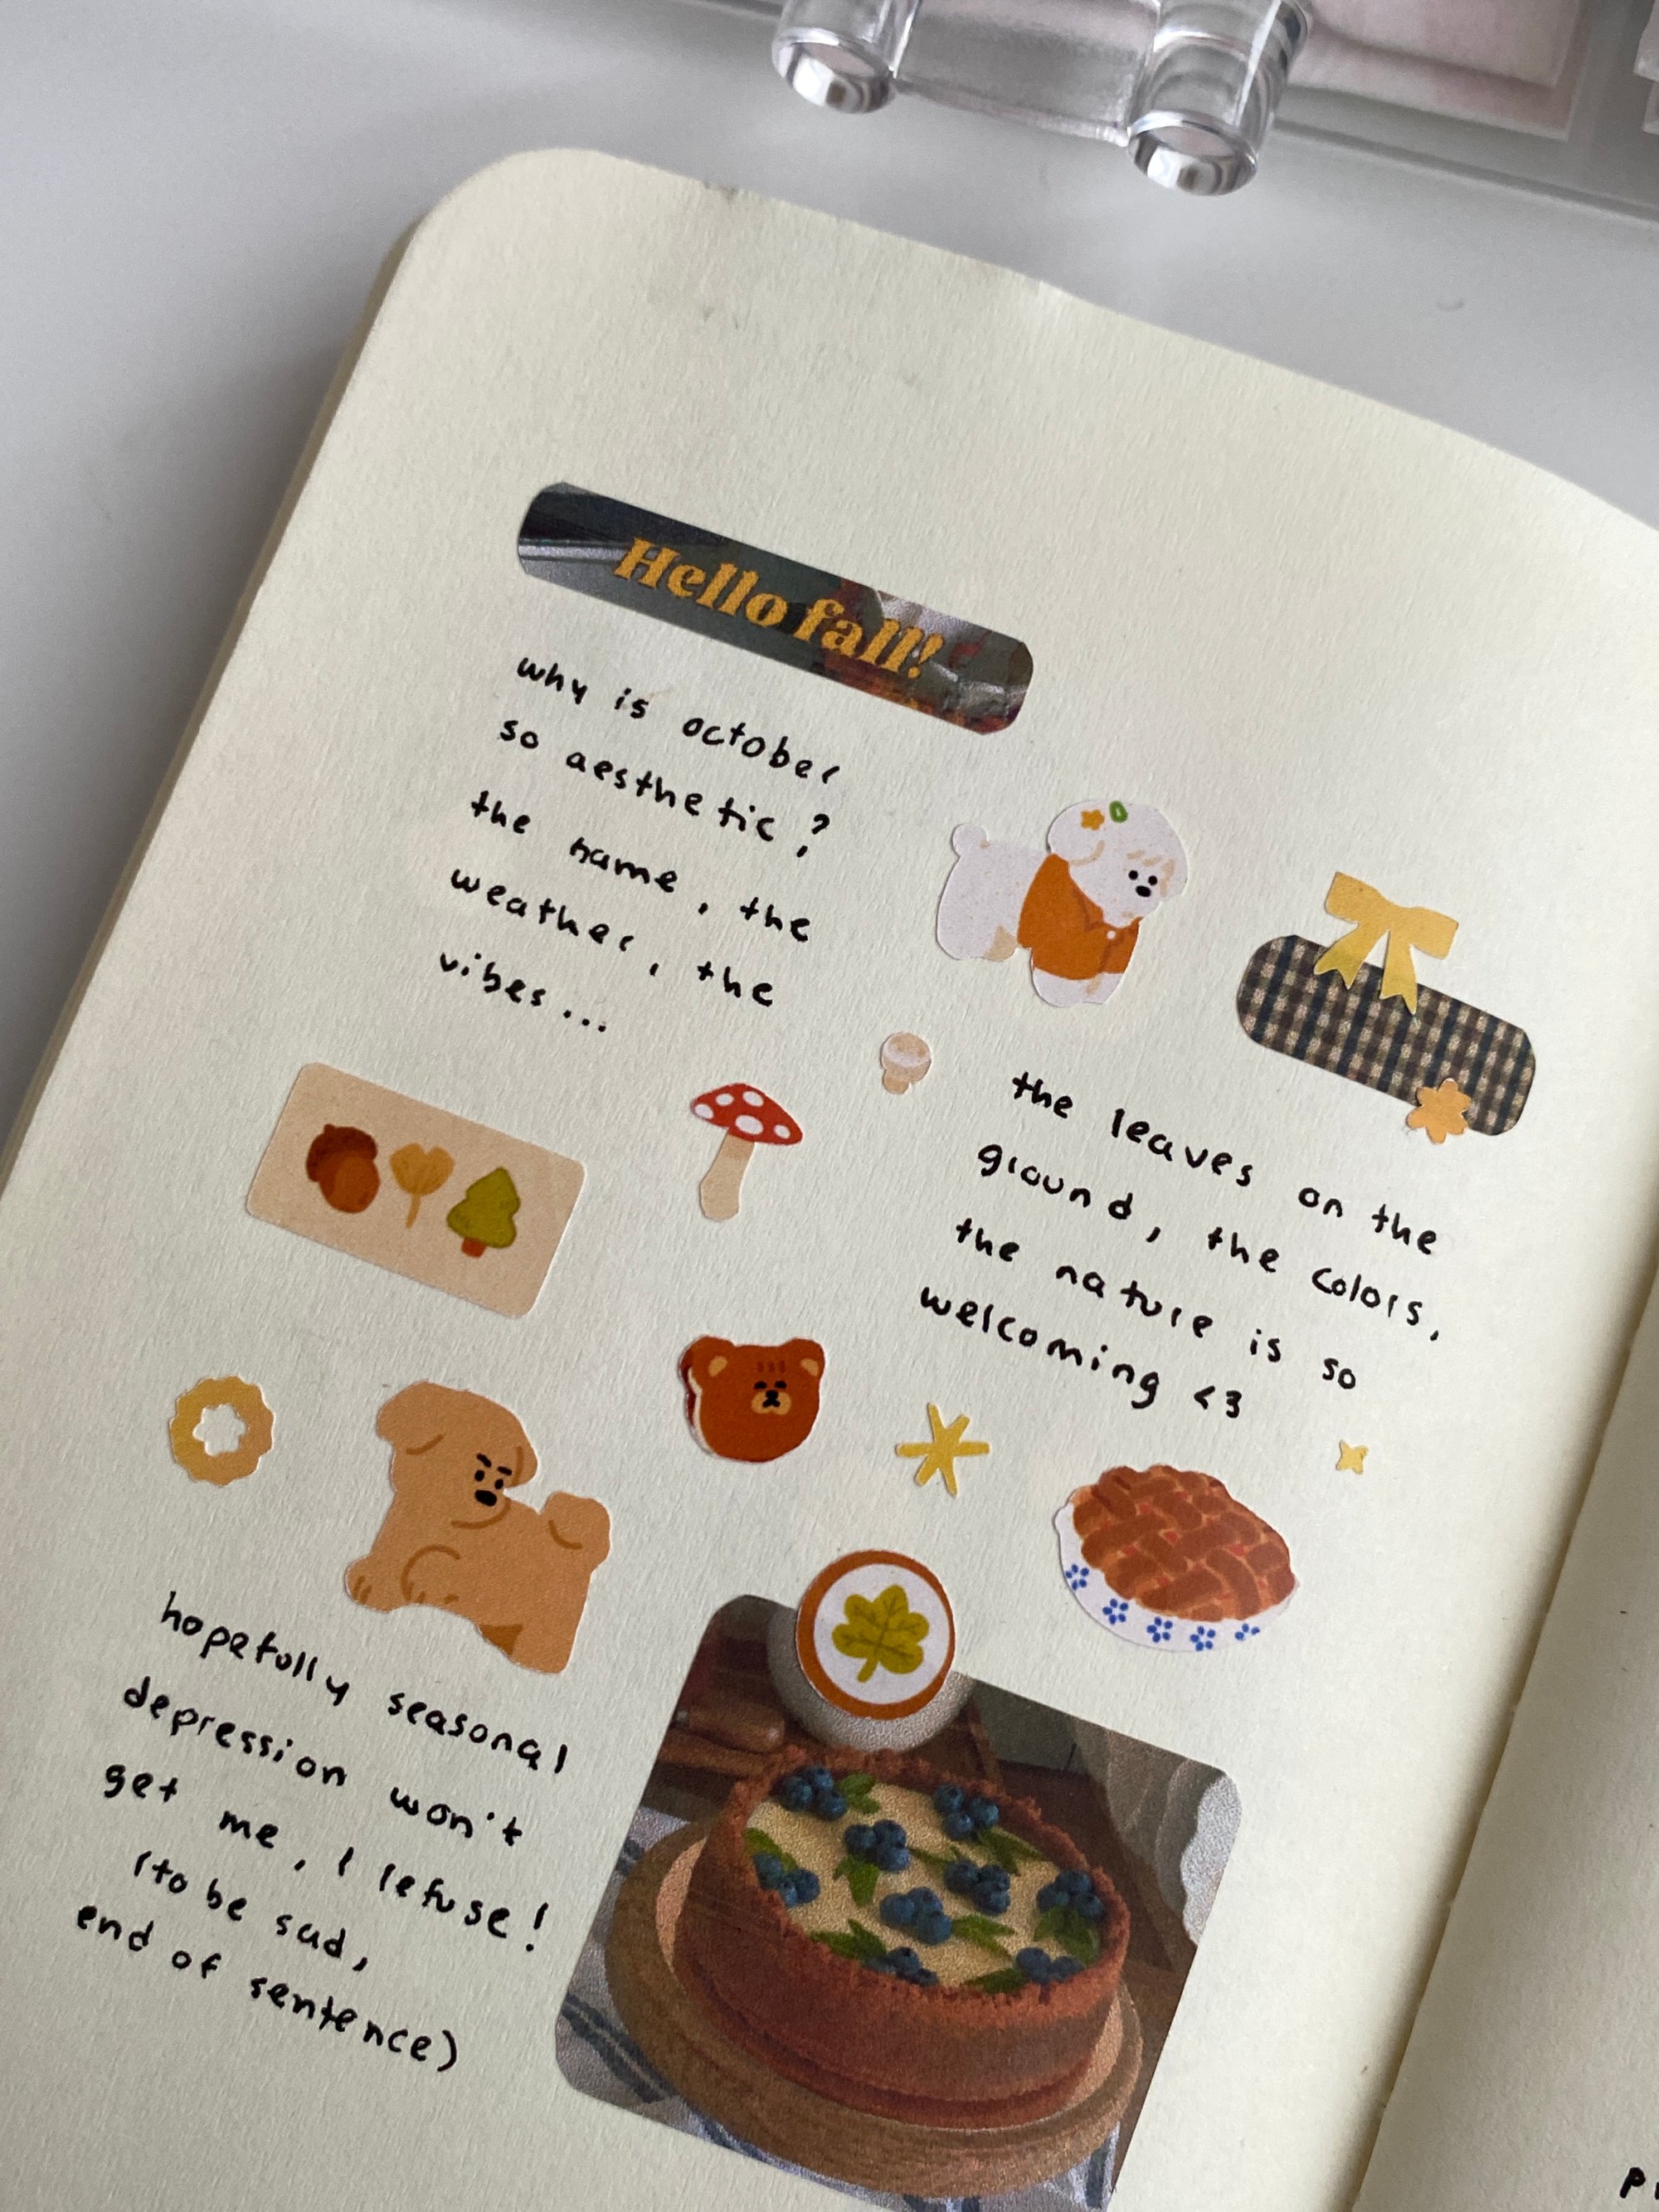 Hello fall!
why is october
so aesthetic?
the name, the
weather, the
vibes...
the leaves on the
ground, the colors,
the nature is so
welcoming <3
hopefully seasonal
depression won't
get me, I refuse!
(to be sad,
end of sentence)